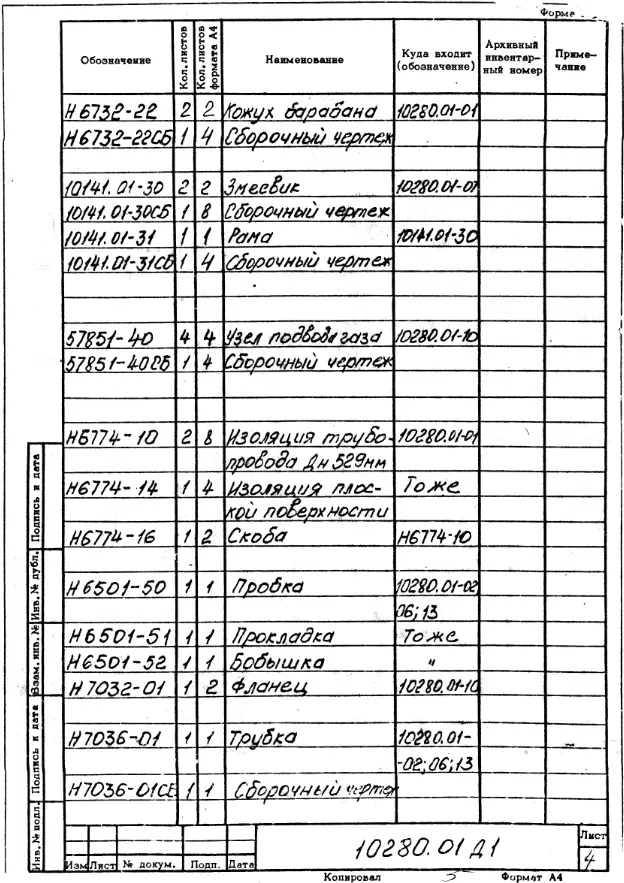 Форма
Обозначение Кол. листов Кол. листов формата А4 Наименование Куда входит (обозначение) Архивный инвентарный номер Примечание
Н6732-22 2 2 Кожух барабана 10280.01-01
Н6732-22СБ 1 4 Сборочный чертеж
10141.01-30 2 2 Змеевик 10280.01-01
10141.01-30СБ 1 8 Сборочный чертеж
10141.01-31 1 1 Рама 10141.01-30
10141.01-31СБ 1 4 Сборочный чертеж
57851-40 4 4 Узел подвода газа 10280.01-10
57851-40СБ 1 4 Сборочный чертеж
Н6774-10 2 8 Изоляция трубо- 10280.01-01
провода Дн 529мм
Н6774-14 1 4 Изоляция плос- То же
кой поверхности
Н6774-16 1 2 Скоба Н6774-10
Н6501-50 1 1 Пробка 10280.01-02
06; 13
Н6501-51 1 1 Прокладка То же
Н6501-52 1 1 Бобышка "
Н7032-01 1 2 Фланец 10280.01-10
Н7036-01 1 1 Трубка 10280.01-
-02; 06; 13
Н7036-01СБ 1 1 Сборочный чертеж
Инв. № подл. Подпись и дата Взам. инв. № Инв. № дубл. Подпись и дата
Изм Лист № докум. Подп. Дата
10280.01 Д1
Лист
4
Копировал
Формат А4